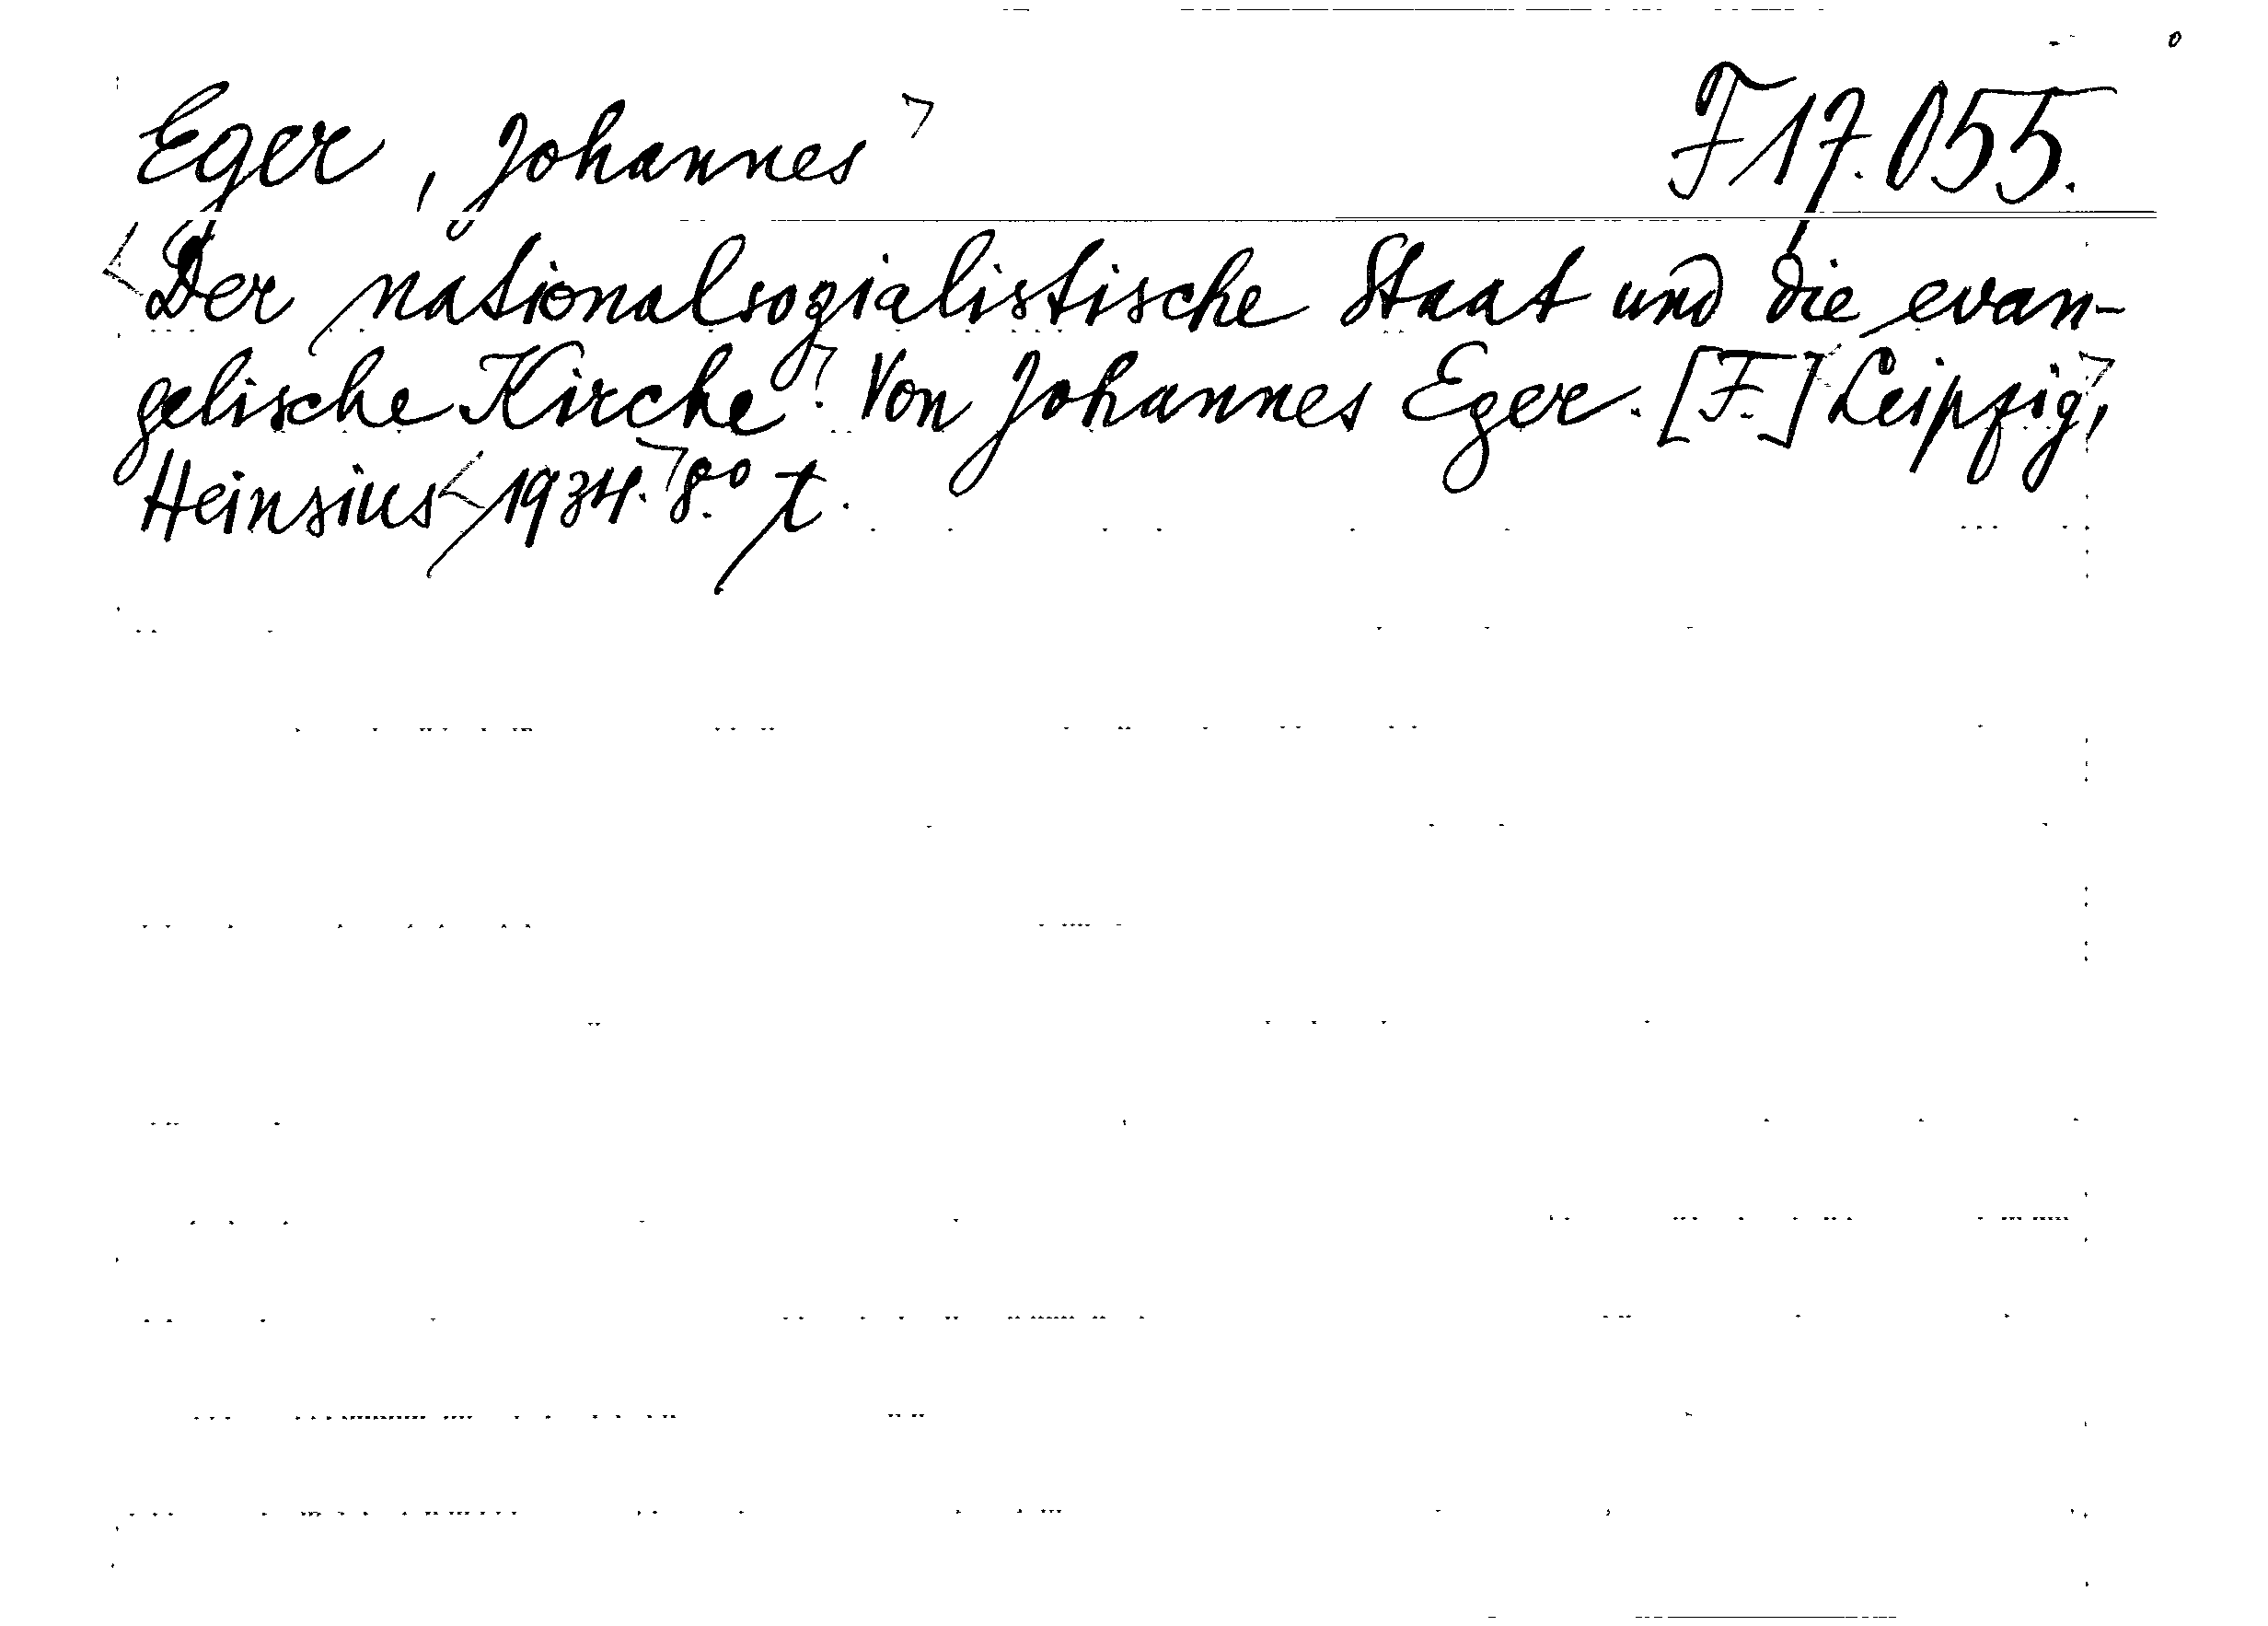 Eger, Johannes F 17.055.
Der nationalsozialistische Staat und die evan-
gelische Kirche. Von Johannes Eger. [F.] Leipzig,
Heinsius 1934. 8.° t.